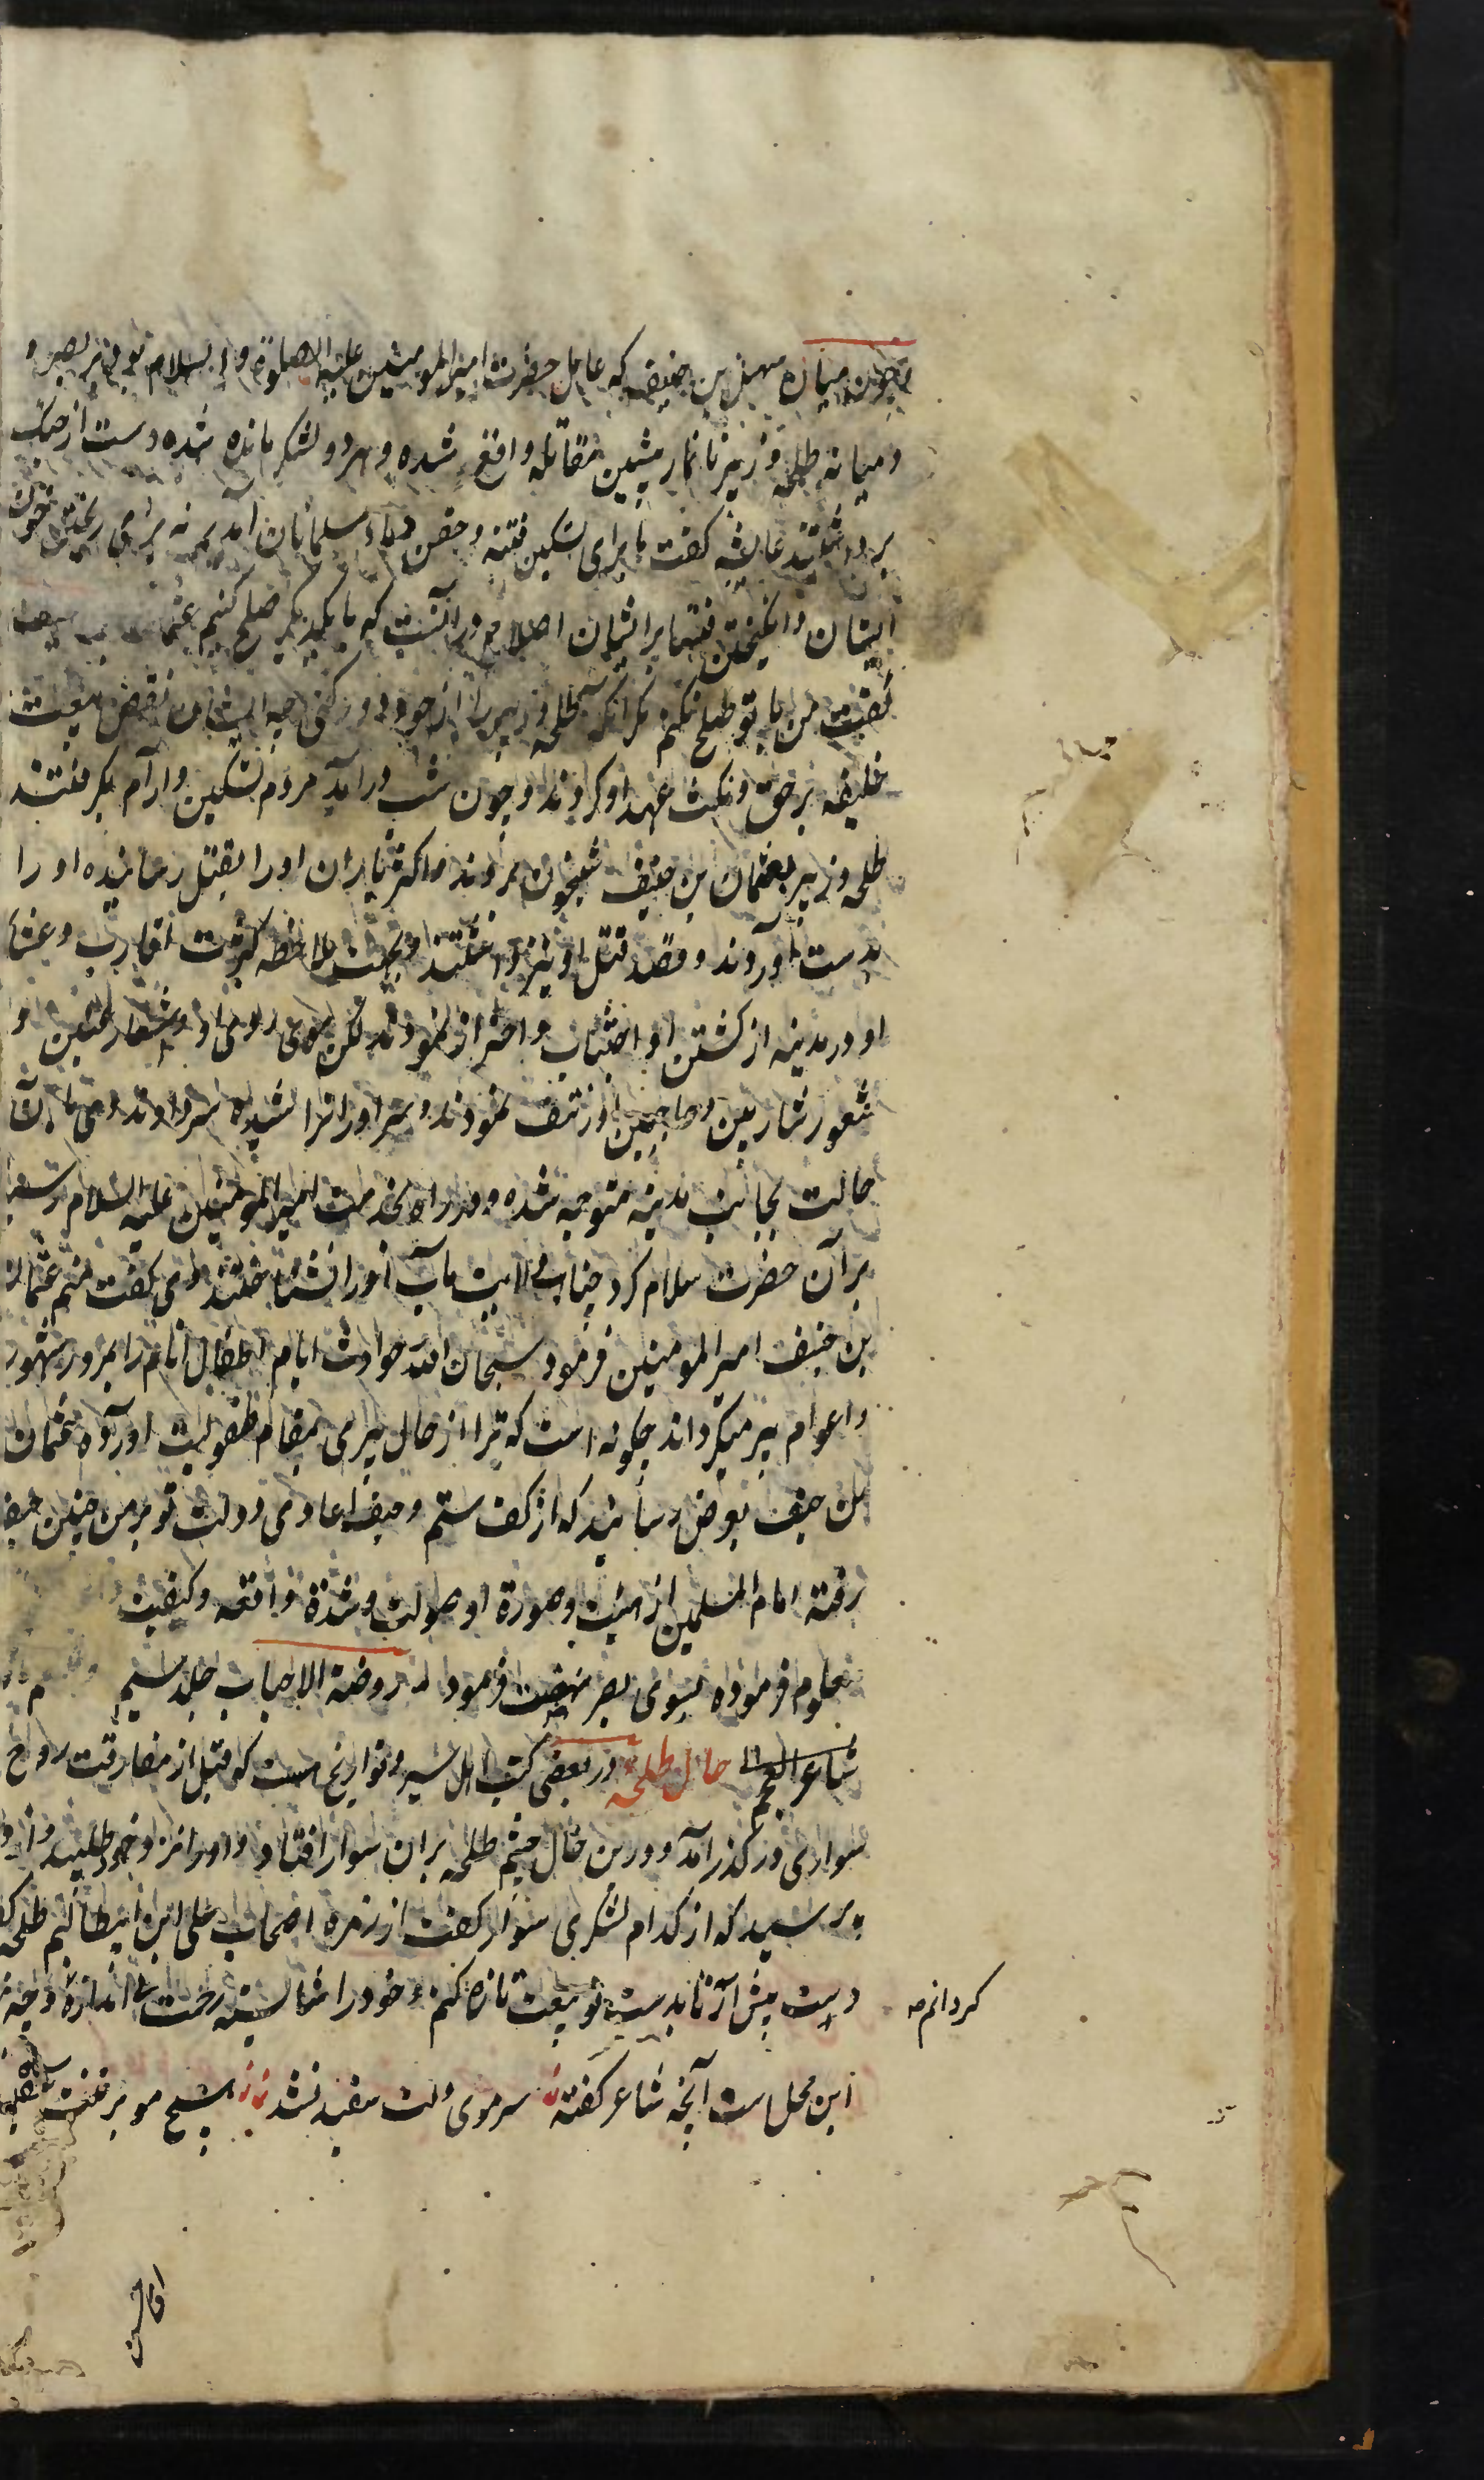 چون میان سهل بن حنیف که عامل حضرت امیرالمومنین علیه الصلوة و السلام بود در بصره و
و میانه طلحه و زبیر تا نماز پیشین مقاتله واقع شده و هر دو لشکر مانده شده دست از جنک
برداشتند عایشه کفت ما برای تسکین فتنه و حقن دماء مسلمانان آمدیم نه برای ریختن خون
ایشان و انکیختن فتنها برایشان اصلاح در آنست که با یکدیکر صلح کنیم عثمان بن حنیف
کفت من با تو صلح نکنم مکر آنکه طلحه و زبیر را از خود دور کنی چه ایشان نقض بیعت
خلیفه برحق و نکث عهد او کردند و چون شب درآمد مردم تسکین و آرام بکرفتند
طلحه و زبیر بعثمان بن حنیف شبخون بردند و اکثر یاران او را بقتل رسانیده او را
بدست آوردند و قصد قتل او نیز داشتند و بجهت ملاحظه کثرت اقارب و عشایر
او در مدینه از کشتن او اجتناب و احتراز نمودند لکن موی روی او و اشعار جفنین و
شعور شاربین و حاجبین او نتف نمودند و سر او را تراشیده سر دادند وی با آن
حالت بجانب مدینه متوجه شده و در راه بخدمت امیرالمومنین علیه السلام رسید
بر آن حضرت سلام کرد جناب ولایت مآب او را نشناختند وی کفت منم عثمان
بن حنیف امیرالمومنین فرمود سبحان الله حوادث ایام اطفال انام را بمرور شهور
و اعوام پیر میکرداند چکونه است که ترا از حال پیری بمقام طفولیت آورده عثمان
بن حنیف بعرض رسانید که از کف ستم و حیف اعادی دولت تو بر من چنین حیف
رفته امام المسلمین از هیئت و صورة او صولت و شدة واقعه و کیفیت
معلوم فرموده بسوی بصره نهضت فرمود از روضة الاحباب جلد سیم
شاعر العجم حال طلحه در بعضی کتب اهل سیر و تواریخ هست که قبل از مفارقت روح
سواری در کذر آمد و درین حال چشم طلحه بران سوار افتاد و او را نزد خود طلبید و از او
پرسید که از کدام لشکری سوار کفت از زمره اصحاب علی ابن ابیطالبم طلحه کفت
دست پیش آر تا بدست تو بیعت تازه کنم و خود را شایسته رحمت بی اندازه
کردانم
این محل است آنچه شاعر کفته سر موی دلت سفید نشد هیچ مو بر تنت سیاه